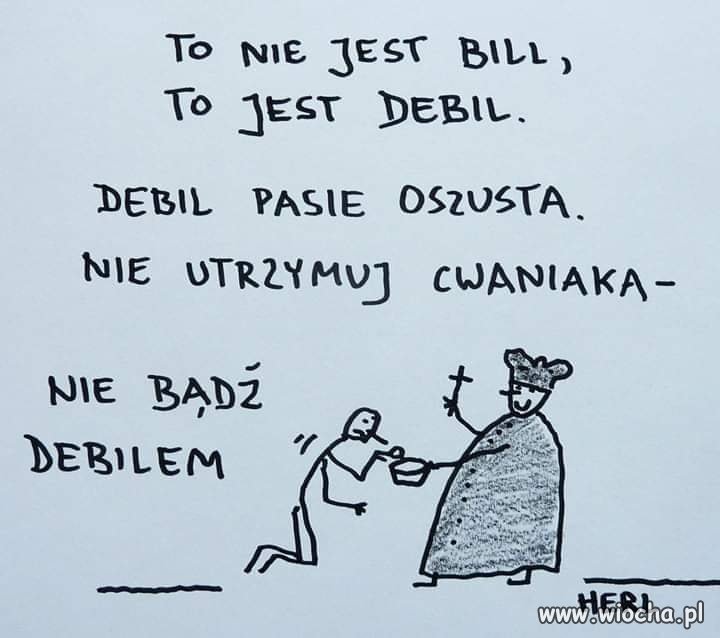 TO NIE JEST BILL,
TO JEST DEBIL.
DEBIL PASIE OSZUSTA.
NIE UTRZYMUJ CWANIAKA –
NIE BĄDŹ
DEBILEM
HERI
www.wiocha.pl